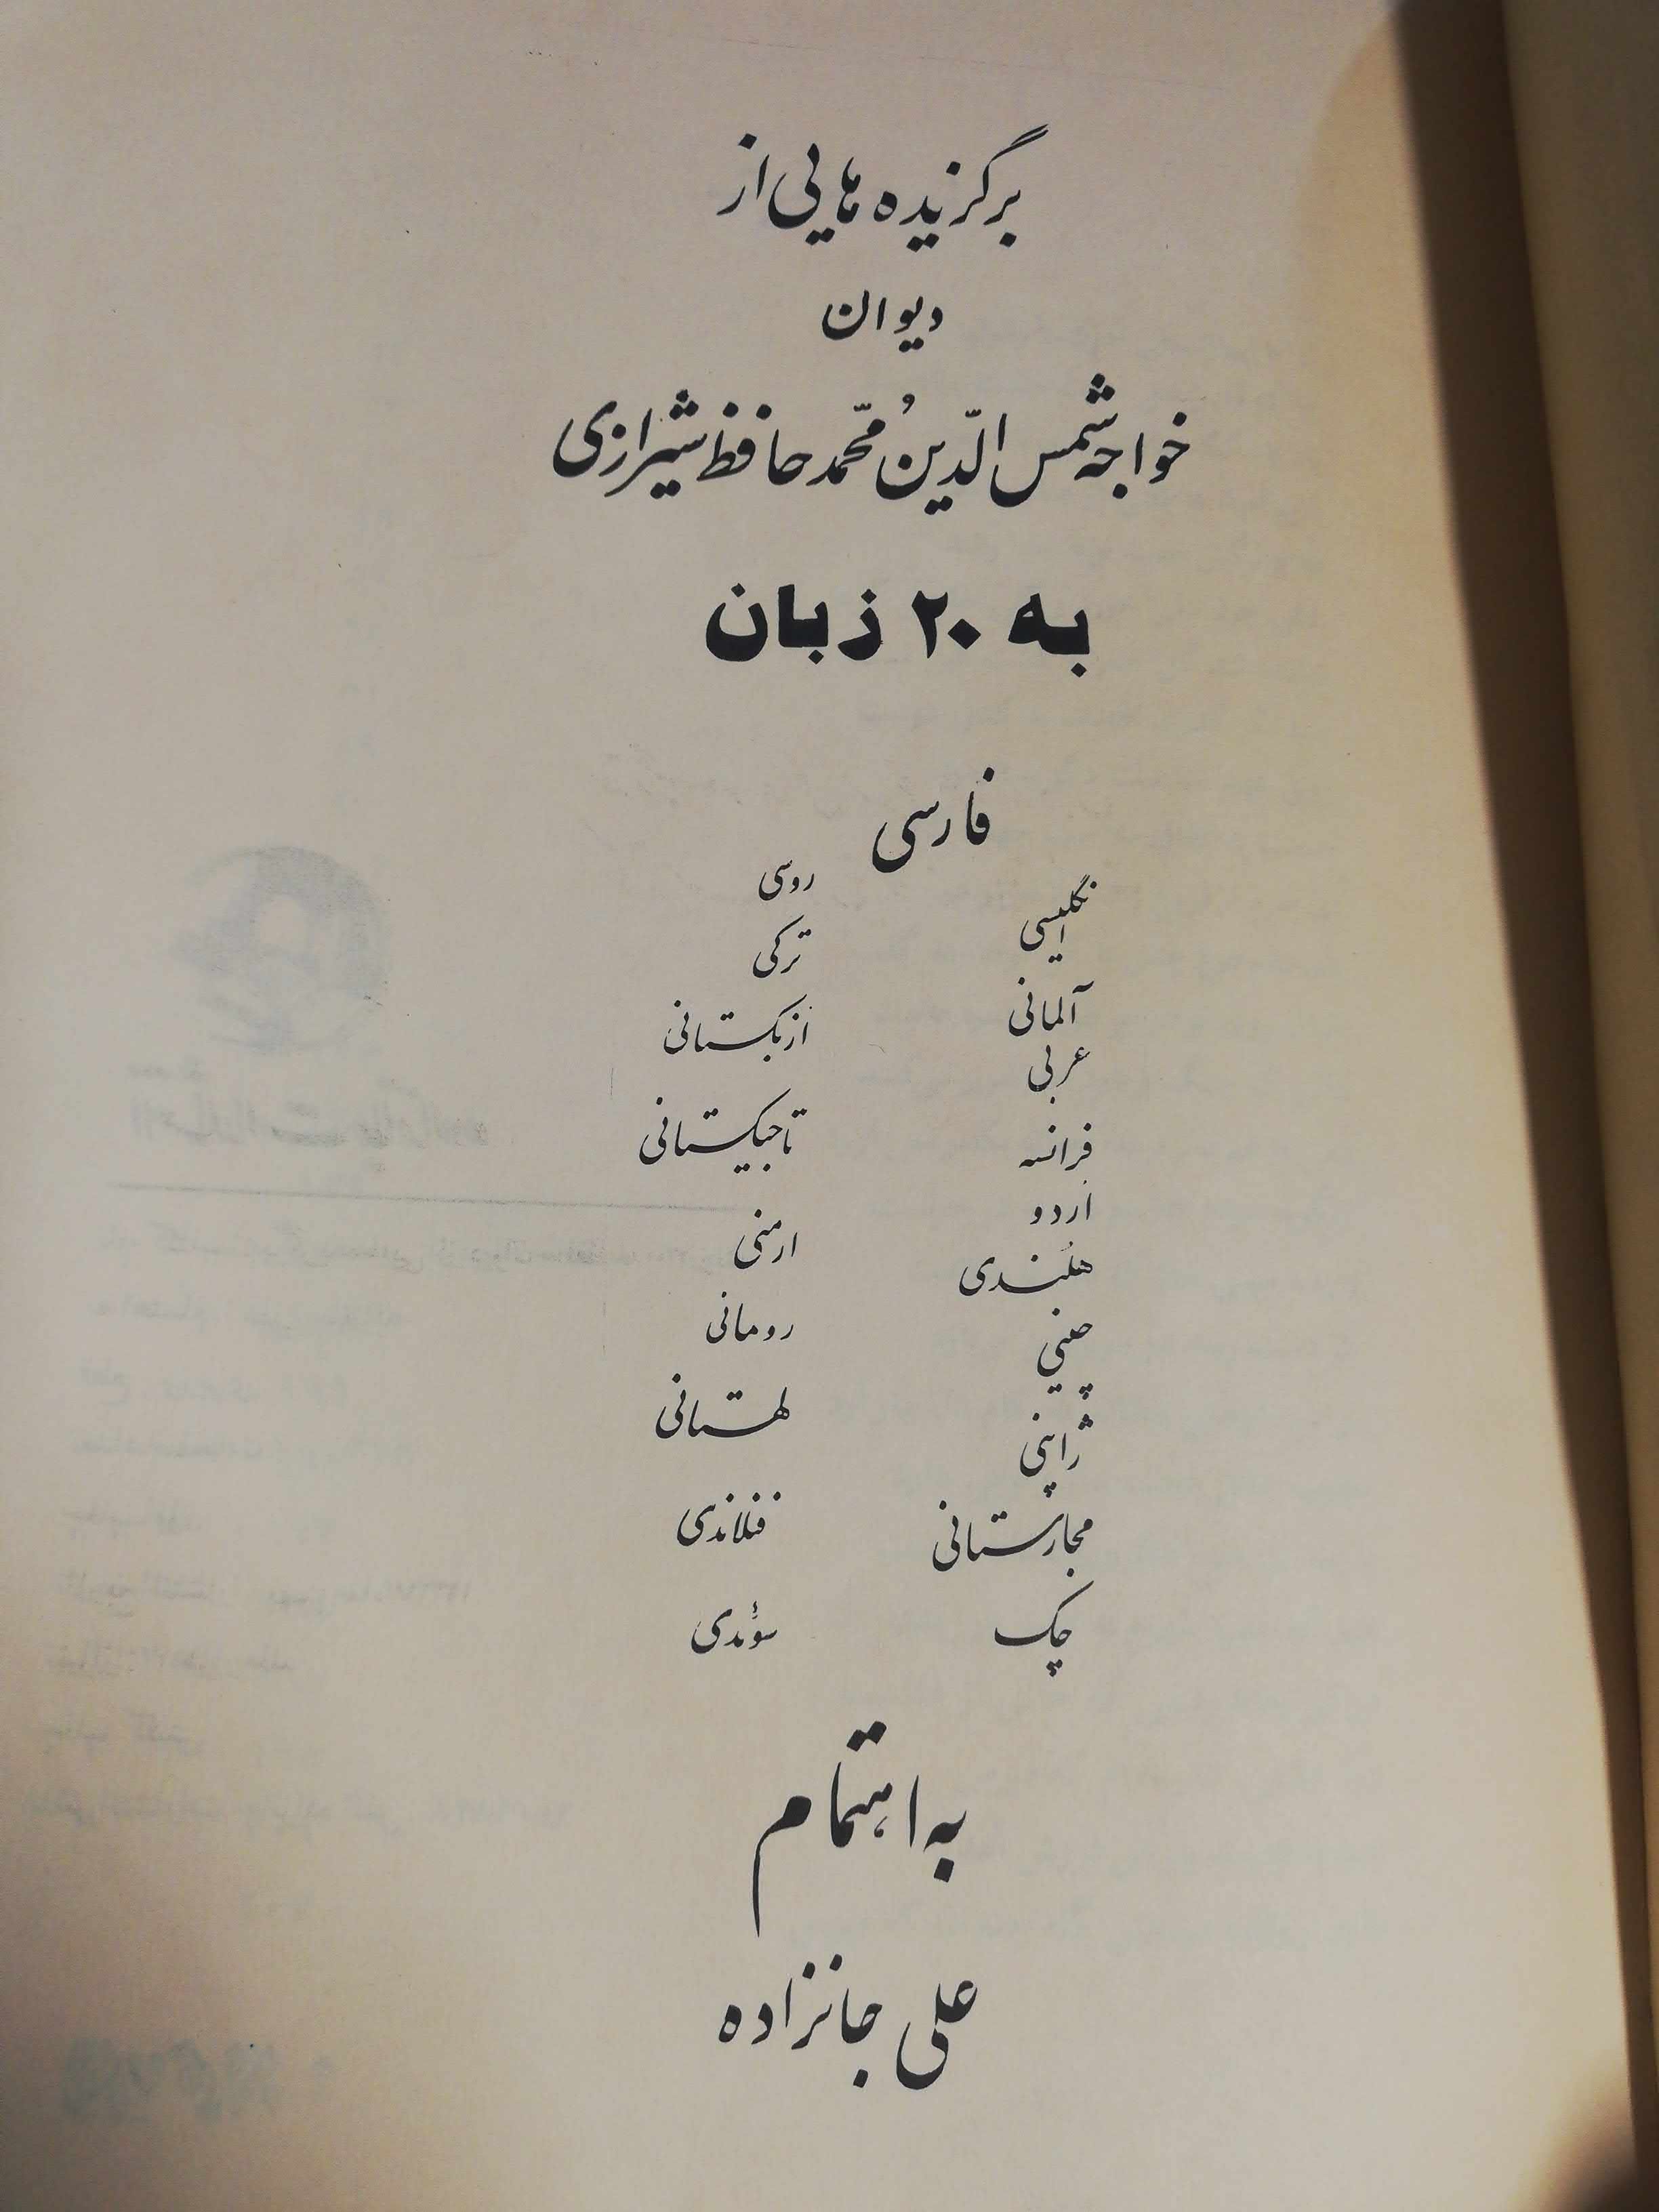 برگزیده هایی از
دیوان
خواجه شمس الدّین مُحمّد حافظ شیرازی
به ۲۰ زبان
فارسی
انگلیسی
آلمانی
عربی
فرانسه
اردو
هلندی
چینی
ژاپنی
مجارستانی
چک
روسی
ترکی
ازبکستانی
تاجیکستانی
ارمنی
رومانی
لهستانی
فنلاندی
سوئدی
به اهتمام
علی جانزاده